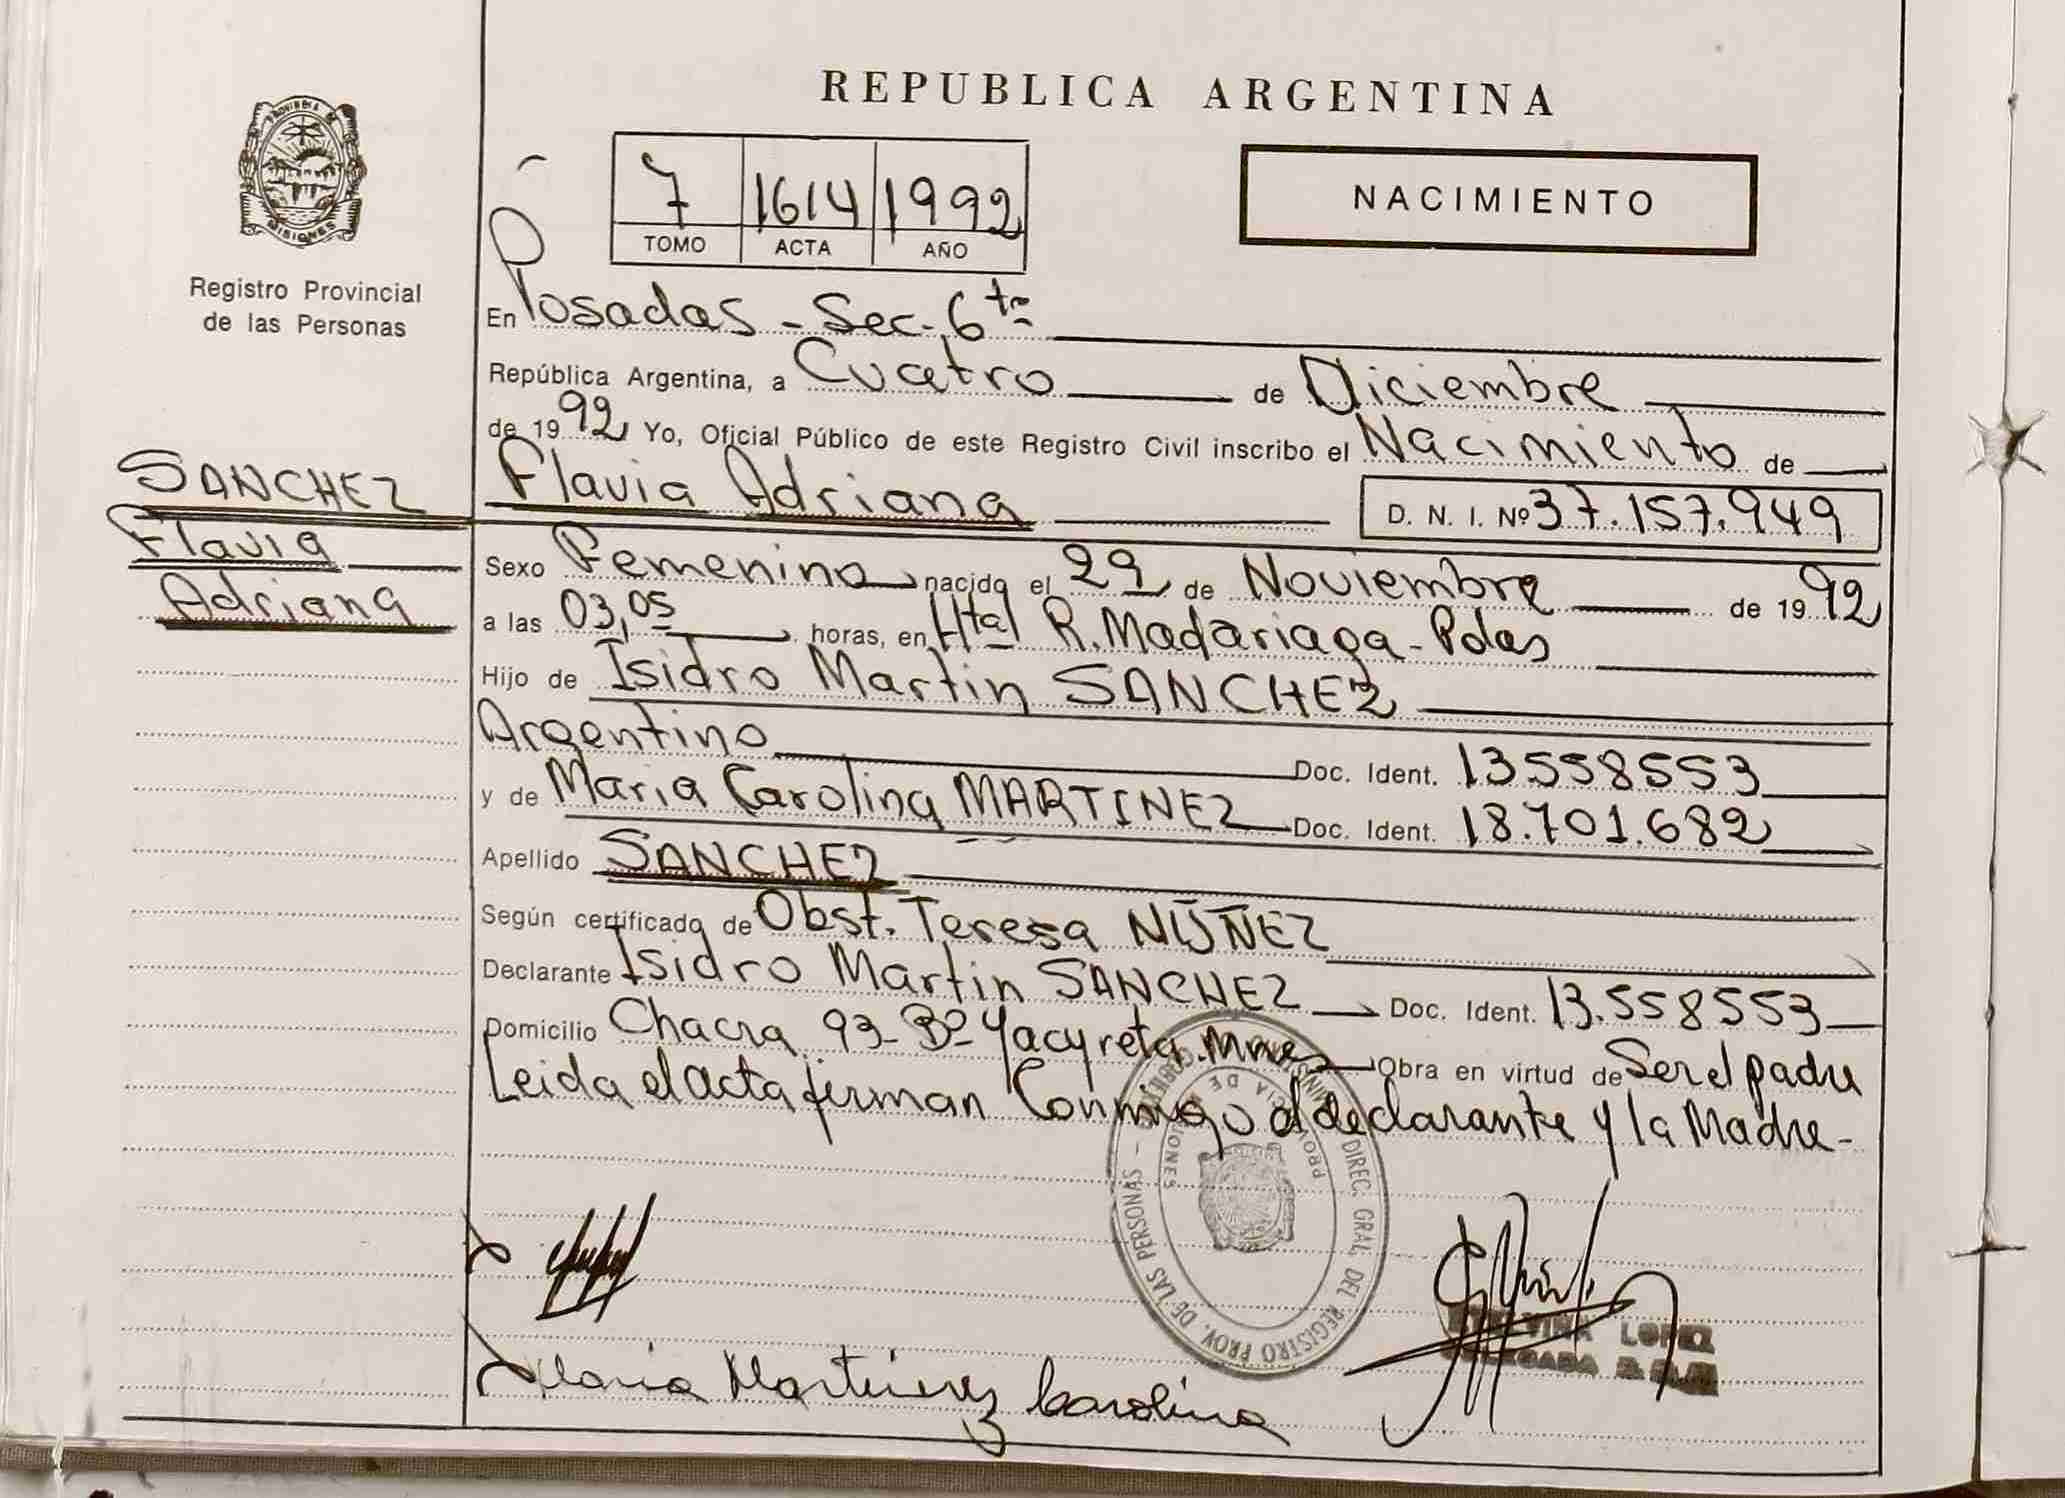 REPUBLICA ARGENTINA
PROVINCIA DE
MISIONES
Registro Provincial
de las Personas
7 1614 1992
TOMO ACTA AÑO
NACIMIENTO
En Posadas - Sec. 6ta
República Argentina, a Cuatro de Diciembre
de 1992 Yo, Oficial Público de este Registro Civil inscribo el Nacimiento de
SANCHEZ
Flavia
Adriana
Flavia Adriana D. N. I. Nº 37.157.949
Sexo Femenino nacido el 29 de Noviembre de 1992
a las 03,05 horas, en Htal R. Madariaga - Pdas
Hijo de Isidro Martin SANCHEZ
Argentino Doc. Ident. 13.558553
y de Maria Carolina MARTINEZ Doc. Ident. 18.701.682
Apellido SANCHEZ
Según certificado de Obst. Teresa NÚÑEZ
Declarante Isidro Martin SANCHEZ Doc. Ident. 13.558553
Domicilio Chacra 93 - Bº Yacyreta. Mnes Obra en virtud de Ser el padre
Leida el acta firman Conmigo el declarante y la Madre -
DIREC. GRAL. DEL REGISTRO PROV. DE LAS PERSONAS -
PROVINCIA DE MISIONES
LOPEZ
DELEGADA
Maria Martinez Carolina